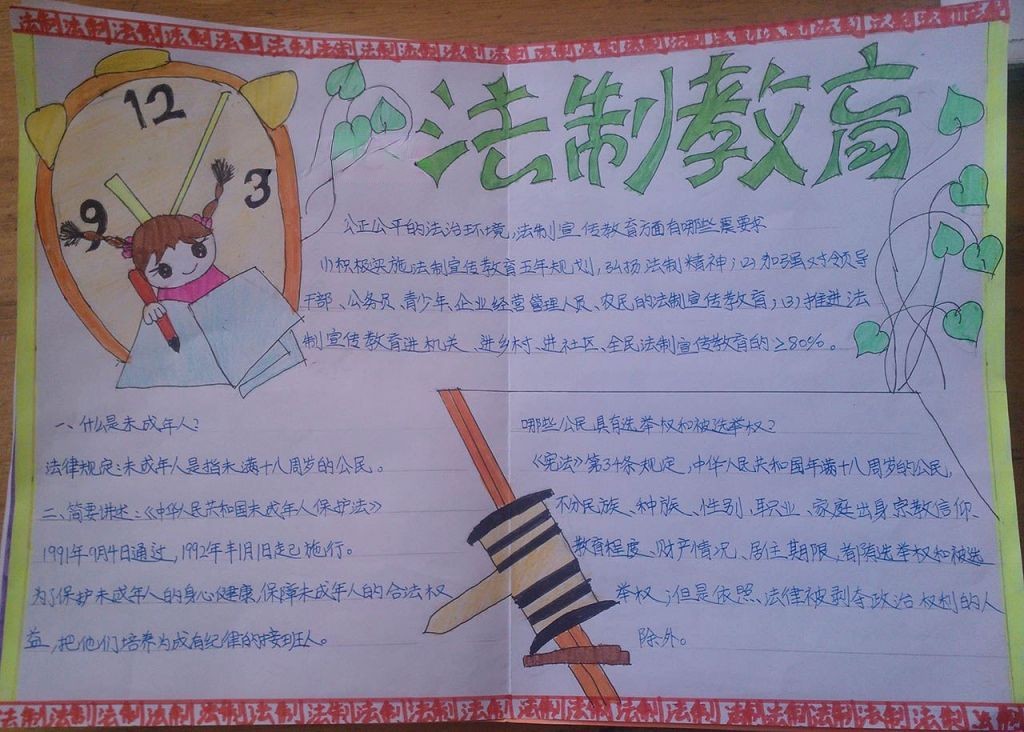 法制法制法制法制法制法制法制法制法制法制法制法制法制法制法制法制法制法制法制
12
3
9
法制教育
公正公平的法治环境,法制宣传教育方面有哪些重要求
(1)积极实施法制宣传教育五年规划,弘扬法制精神;(2)加强对领导
干部、公务员、青少年、企业经营管理人员、农民的法制宣传教育;(3)推进法
制宣传教育进机关、进乡村、进社区、全民法制宣传教育的≥80%。
一、什么是未成年人?
法律规定:未成年人是指未满十八周岁的公民。
二、简要讲述:《中华人民共和国未成年人保护法》
1991年9月4日通过,1992年1月1日起施行。
为了保护未成年人的身心健康,保障未成年人的合法权
益,把他们培养为成有纪律的接班人。
哪些公民具有选举权和被选举权?
《宪法》第34条规定,中华人民共和国年满十八周岁的公民,
不分民族、种族、性别、职业、家庭出身宗教信仰、
教育程度、财产情况、居住期限,都有选举权和被选
举权;但是依照法律被剥夺政治权利的人
除外。
法制法制法制法制法制法制法制法制法制法制法制法制法制法制法制法制法制法制法制